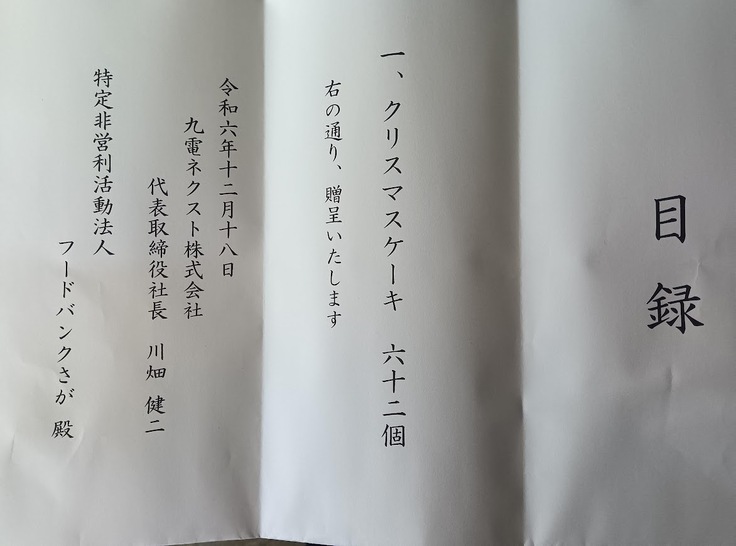 目録
一、クリスマスケーキ 六十二個
右の通り、贈呈いたします
令和六年十二月十八日
九電ネクスト株式会社
代表取締役社長 川畑 健二
特定非営利活動法人
フードバンクさが 殿